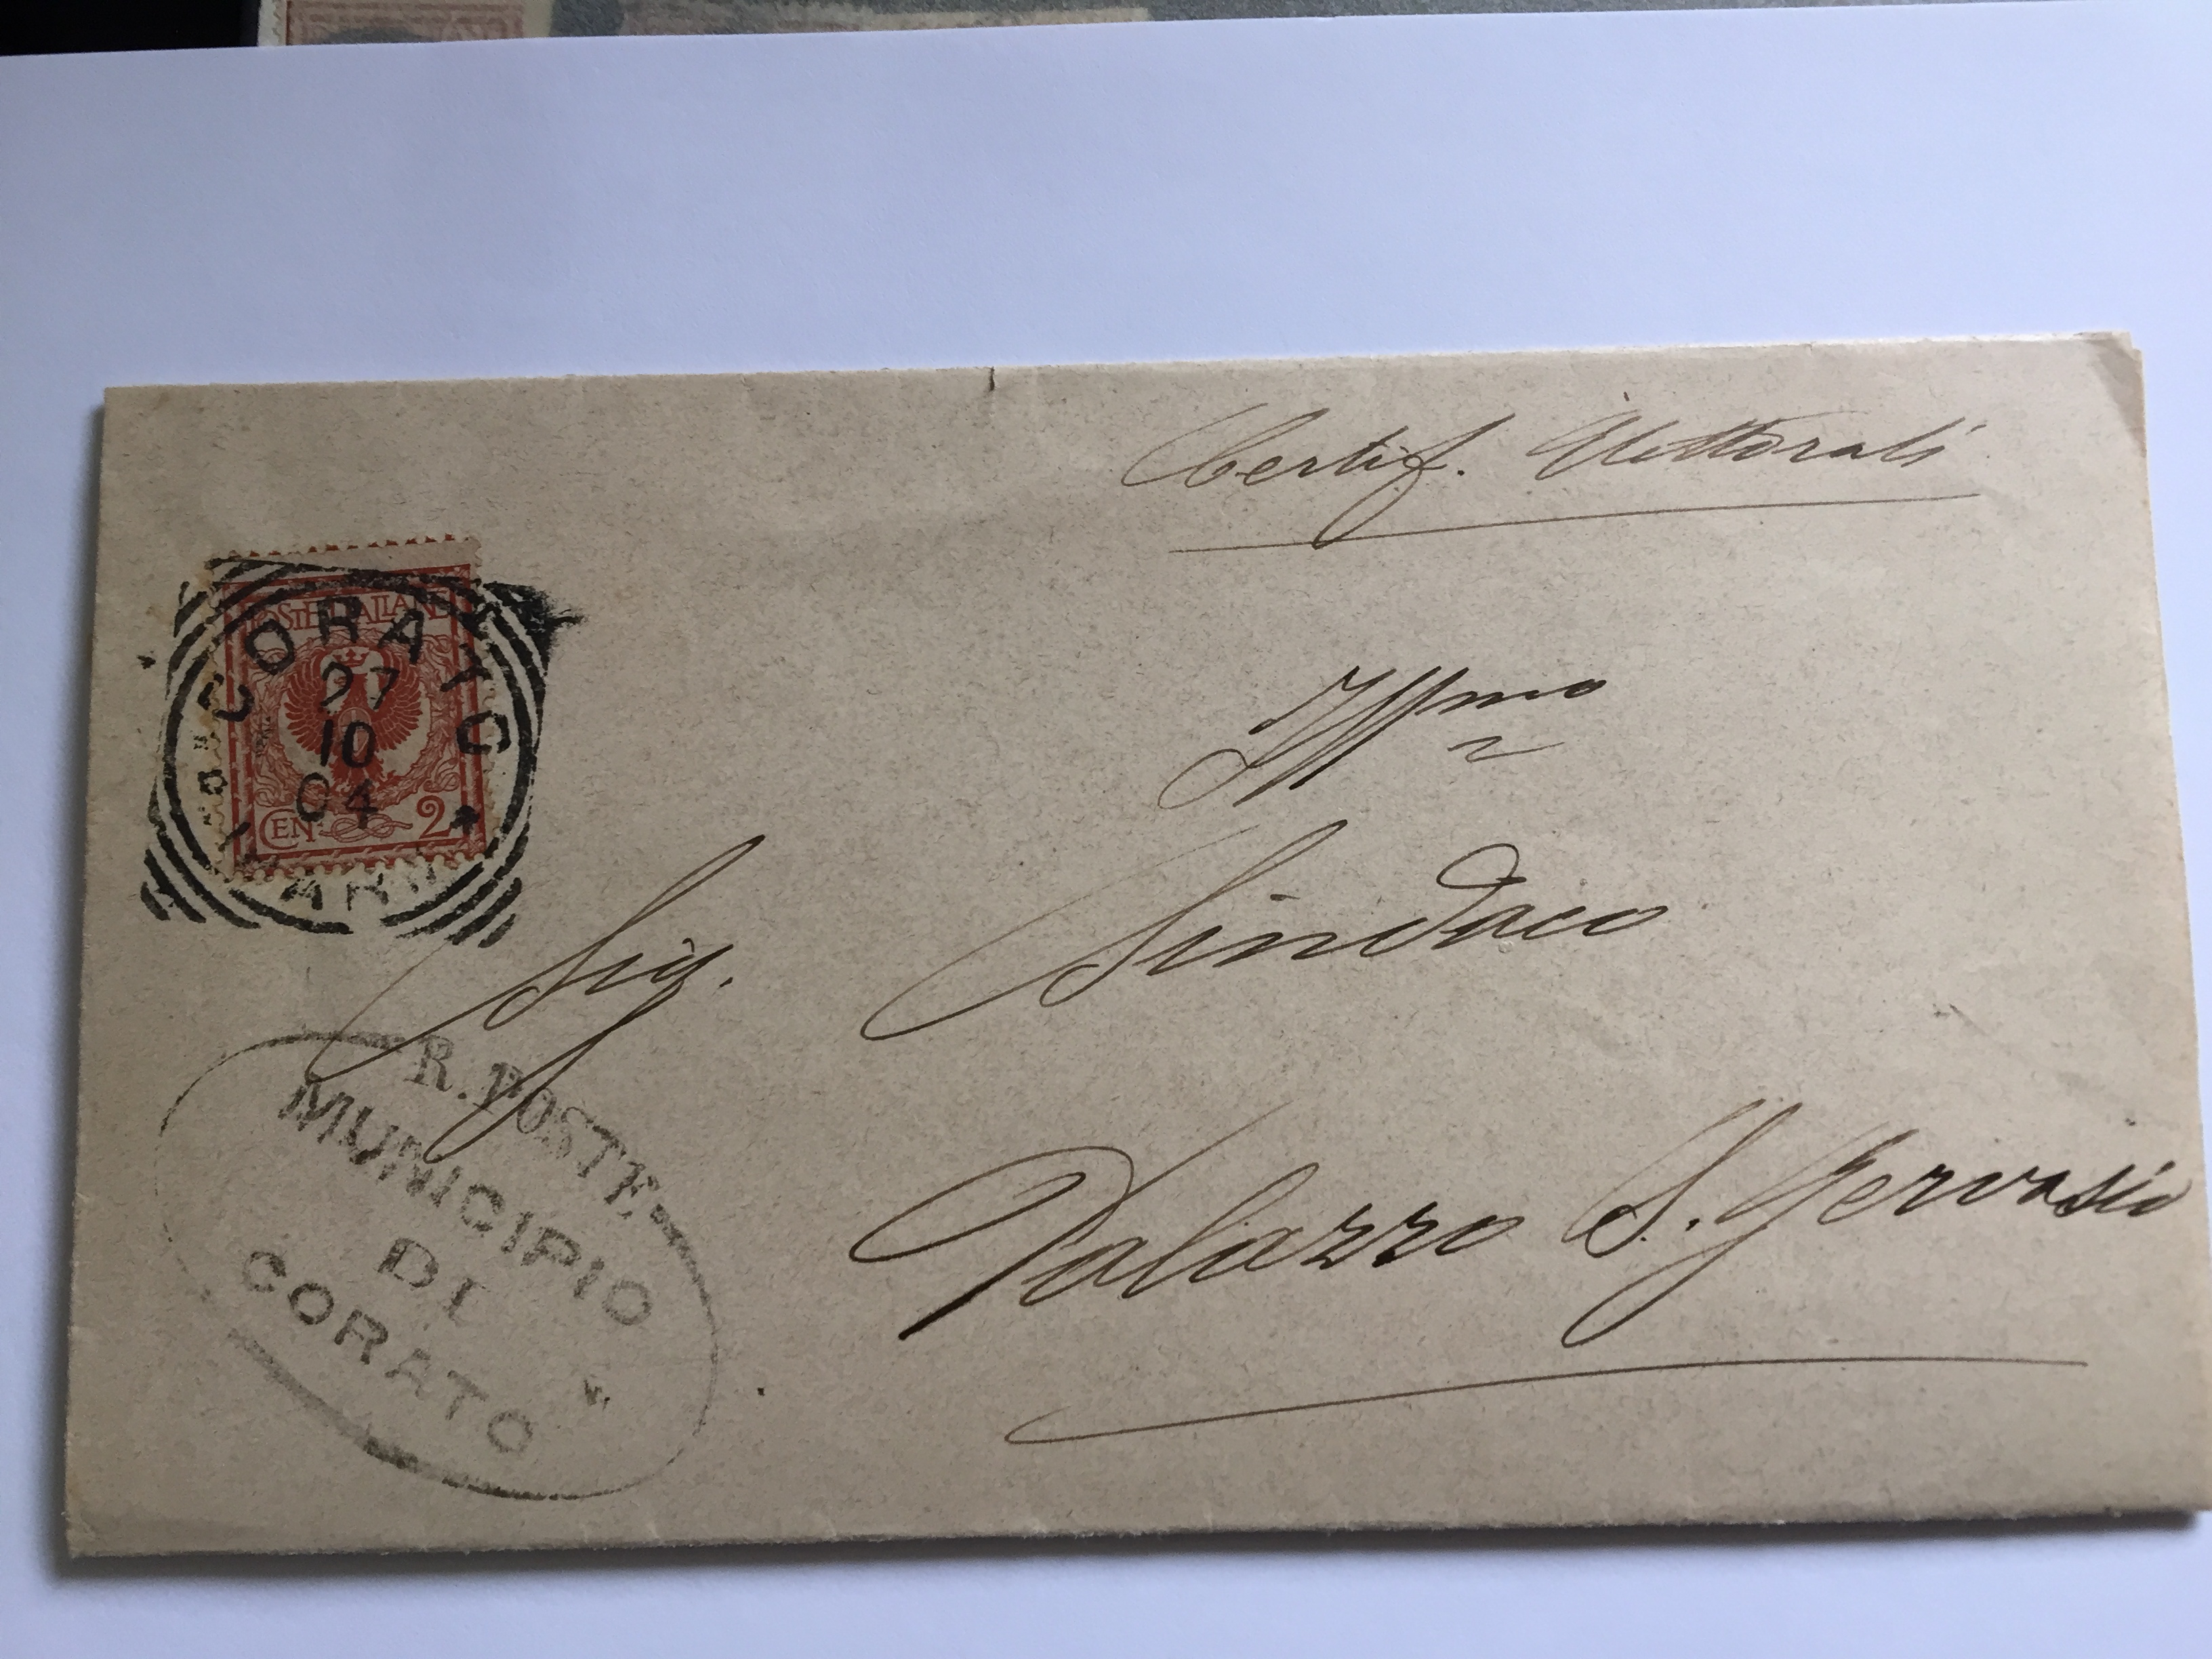 Certif. Elettorali
POSTE ITALIANE
CORATO
27
10
04
CEN 2
Illmo
Sig. Sindaco
Palazzo S. Gervasio
R. POSTE
MUNICIPIO
DI
CORATO